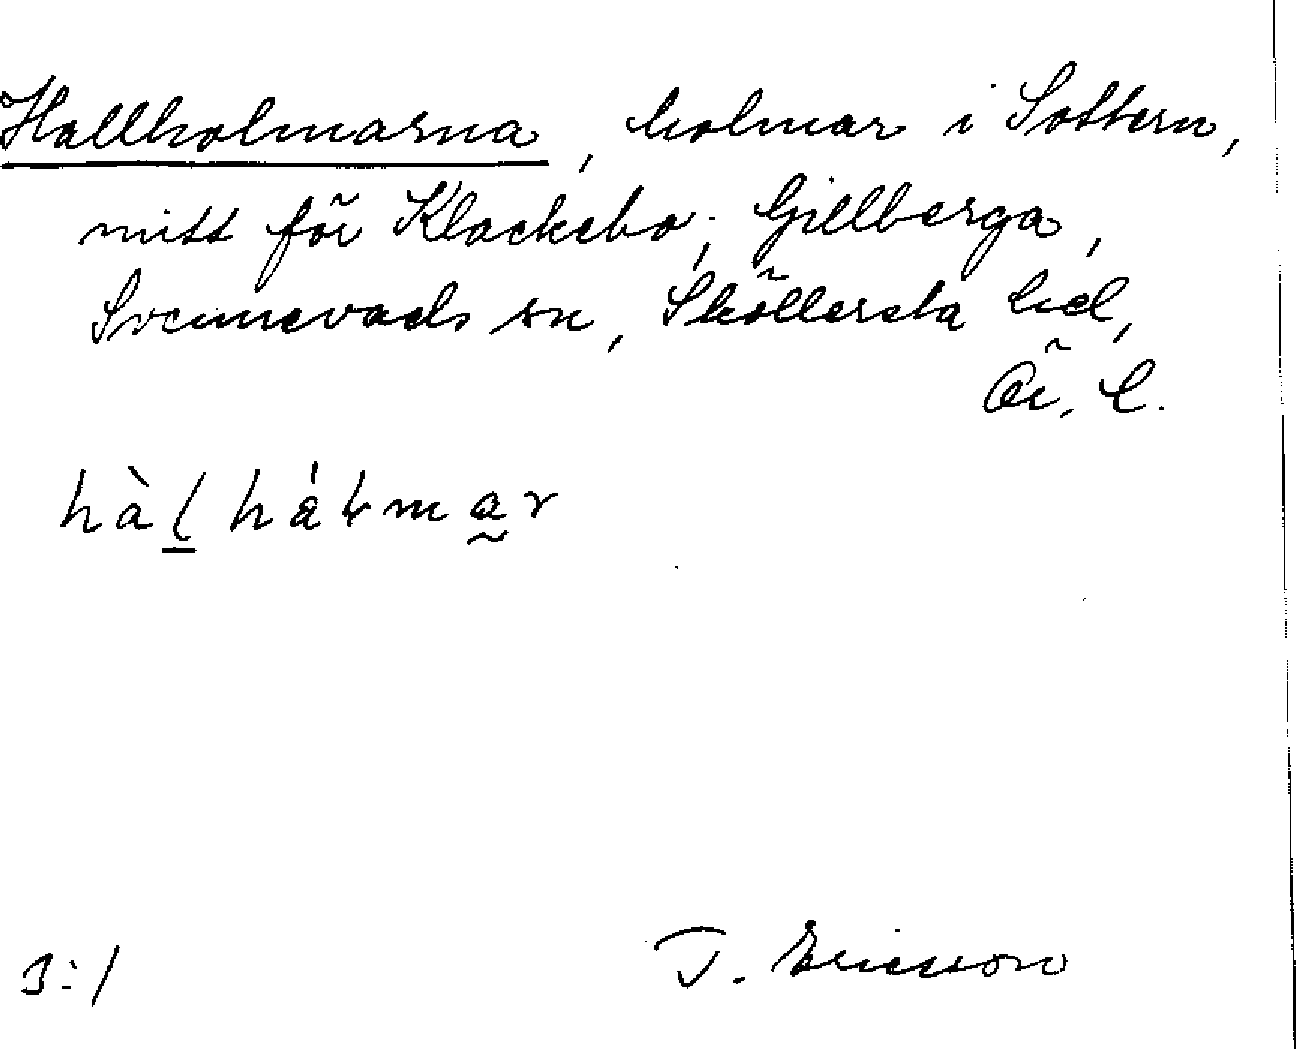 Hallholmarna, holmar i Sottern,
mitt för Klockebo, Gillberga,
Svennevads sn, Sköllersta hd,
Ör. l.
hàl̠hȧ́ƚma̰r
3:1
T. Ericsson